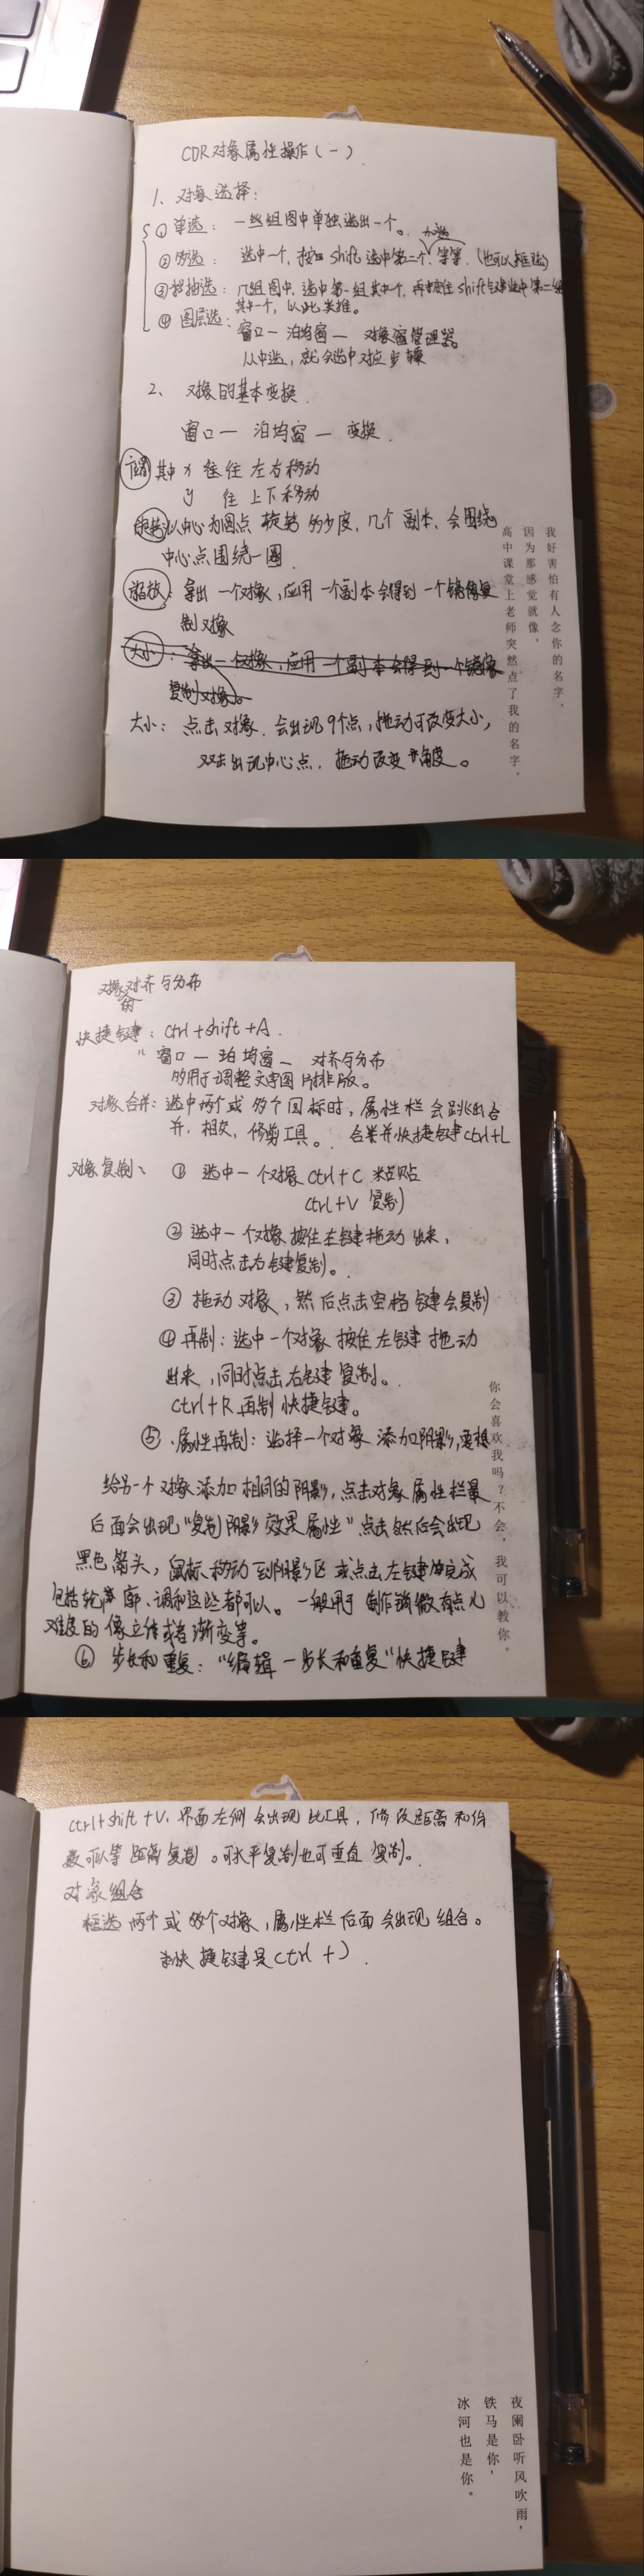 CDR对象属性操作（一）
1、对象选择：
① 单选：一些组图中单独选出一个。
加选
② 多选：选中一个，按 shift 选中第二个.等等.（也可以框选）
几组图中，选中第一组其中一个，再按住shift键选中第二组
其中一个，以此类推。
④ 图层选：
窗口一 泊坞窗一 对象管理器。
从中选，就会选中对应步骤
2、对象的基本变换.
窗口一 泊坞窗一 变换.
位置 其中 x 往 左右移动
y 往 上下移动
旋转 以中心为圆点 旋转 多少度，几个副本，会围绕
中心点围绕一圈.
缩放：拿出一个对象，应用一个副本会得到一个镜像复
制对象
大小：拿出一个对象，应用一个副本会得到一个镜像
复制对象。
大小：点击对象.会出现9个点，拖动可改变大小，
双击出现中心点.拖动改变角度。
我好害怕有人念你的名字，
因为那感觉就像，
高中课堂上老师突然点了我的名字。
对象的对齐与分布
快捷键：ctrl+shift+A.
" 窗口一 泊坞窗一 对齐与分布
多用于调整文字图片排版。
对象合并：选中两个或多个图标时，属性栏会跳出合
并，相交，修剪工具。合并快捷键ctrl+L
对象复制、① 选中一个对象 ctrl+C 粘贴
ctrl+V 复制)
② 选中一个对象 按住左键拖动 出来，
同时点击右键复制。
③ 拖动对象，然后点击空格键会复制
④ 再制：选中一个对象 按住左键 拖动
出来，同时点击右键复制。
ctrl+R 再制快捷键。
⑤ .属性再制：选择一个对象 添加阴影，要想
给另一个对象添加相同的阴影，点击对象属性栏最
后面会出现"复制阴影效果属性"点击然后会出现
黑色箭头，鼠标移动到阴影区 或点击左键完成
包括轮廓、调和这些都可以。一般用于制作稍微有点儿
难度的 像立体或者渐变等。
⑥ 步长和重复："编辑一步长和重复"快捷键
你会喜欢我吗？不会，我可以教你。
ctrl+shift+V，界面左侧 会出现此工具，修改距离和份
数可以等距离复制。可水平复制也可垂直复制。
对象组合
框选两个或多个对象，属性栏后面会出现组合。
快捷键是ctrl +)
夜阑卧听风吹雨，
铁马是你，
冰河也是你。